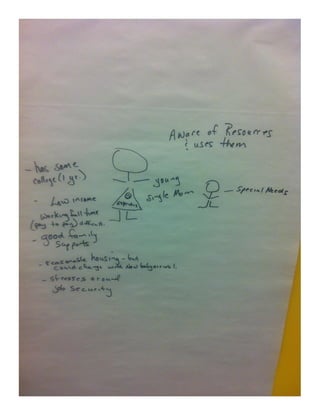 Aware of Resources
& uses them
- has some
college (1 yr.)
- young
single Mom
- Special Needs
- Low income
working full time
(pay to pay)
- good family
supports
- reasonable housing - but
could change with new baby arrival.
- stresses around
job security